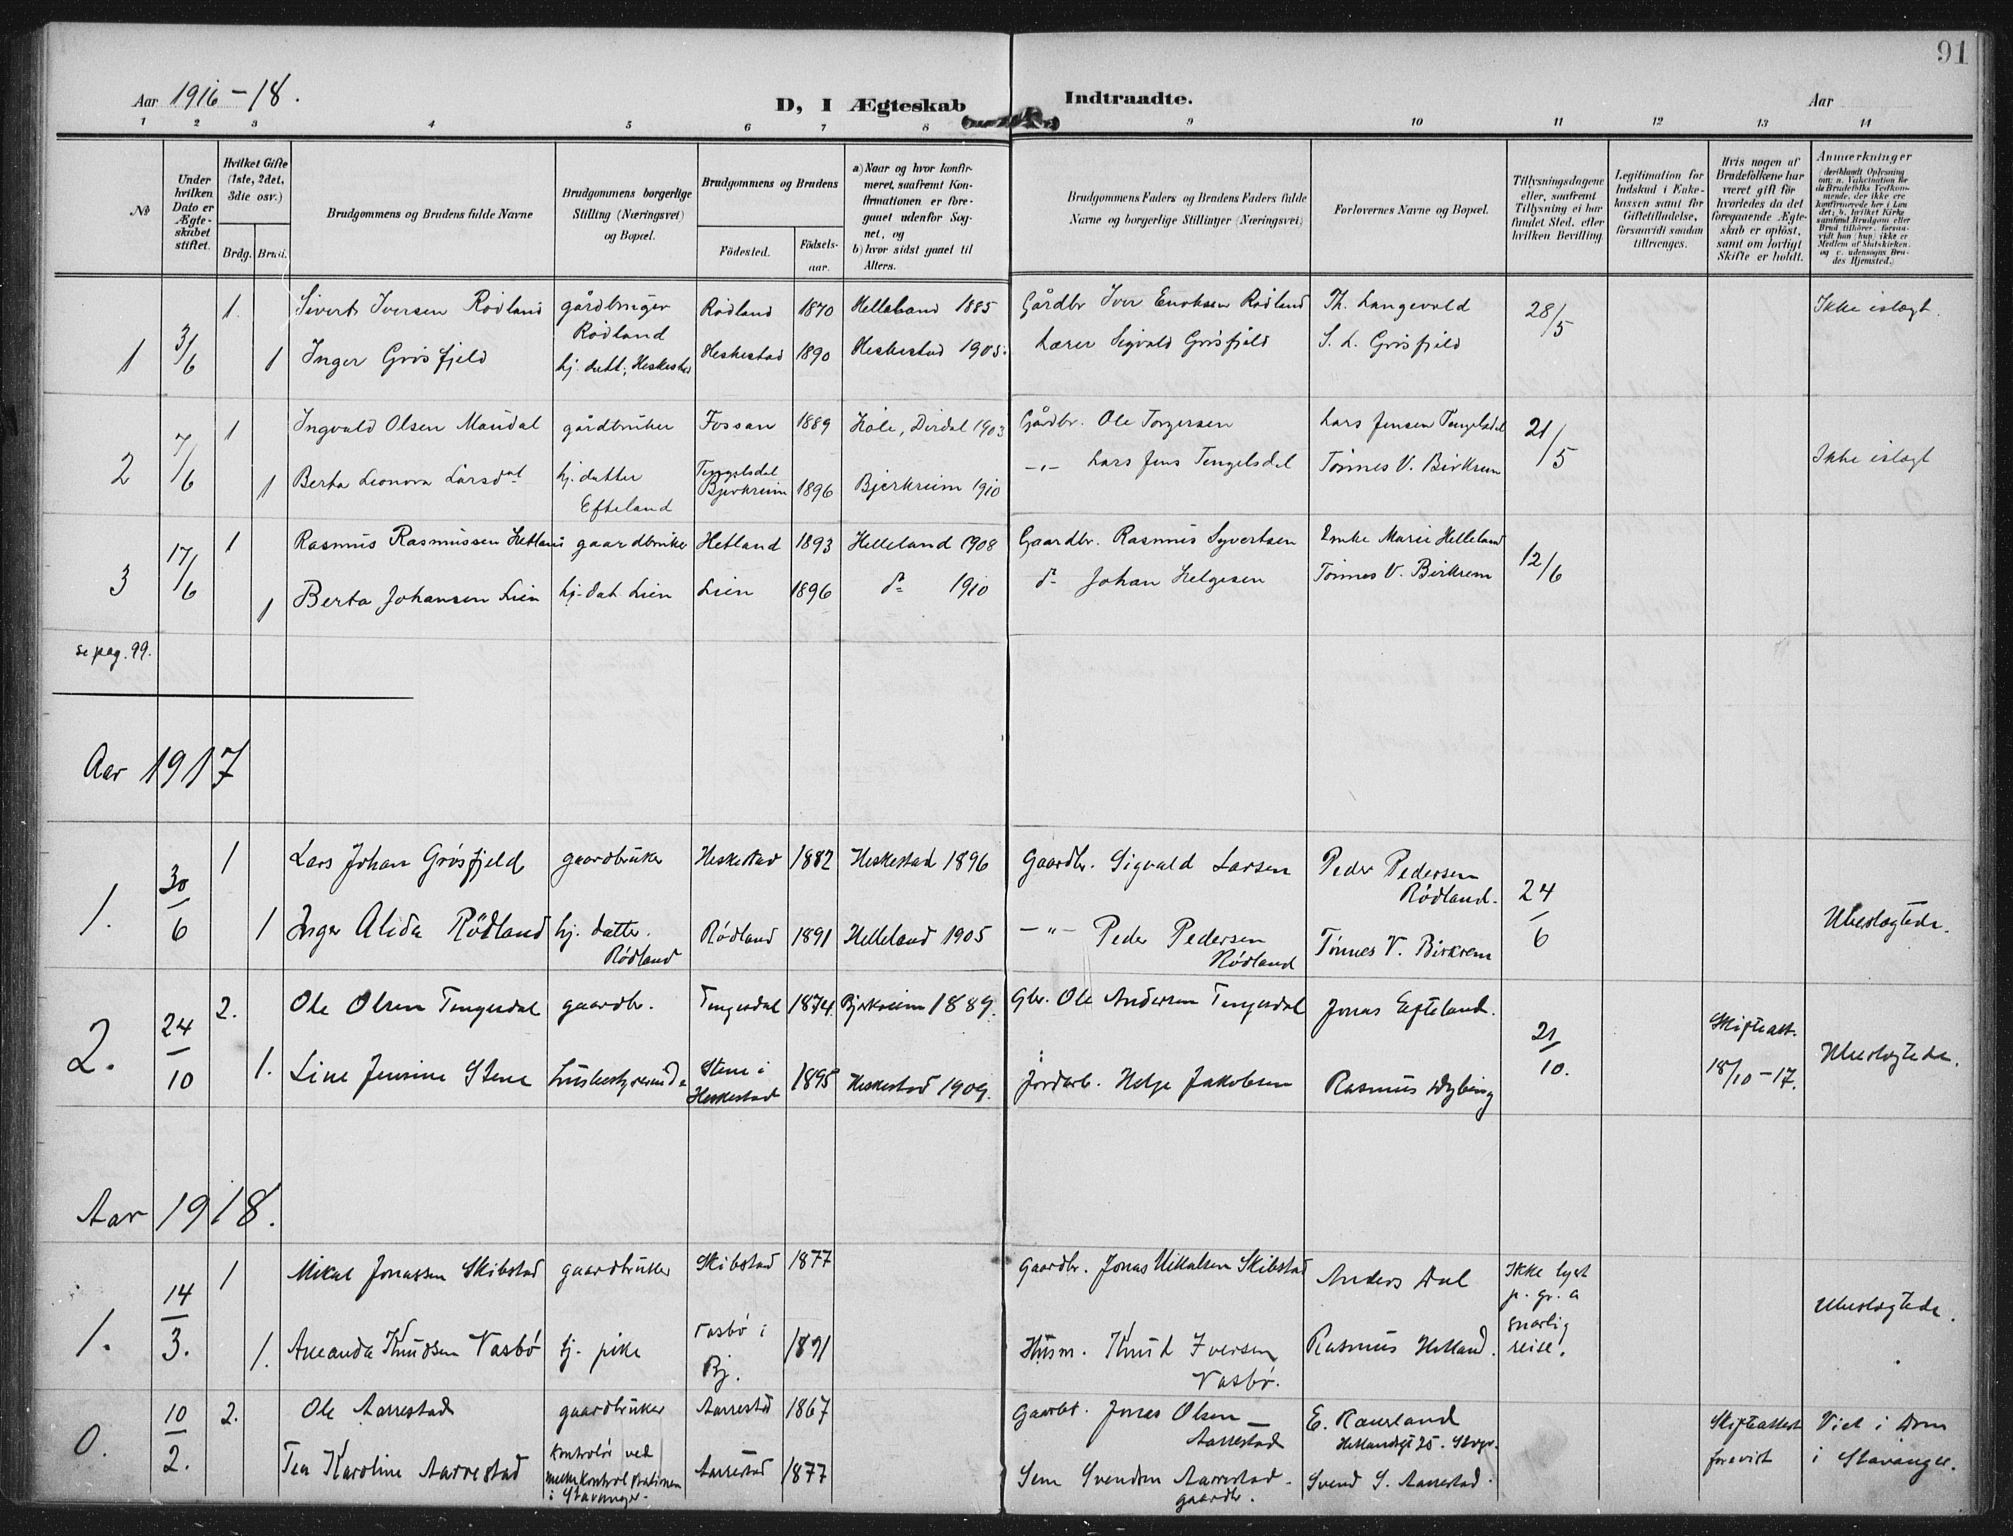 91
Aar 1916-18.
D, I Ægteskab Indtraadte.
Aar
1 2 3 4 5 6 7 8 9 10 11 12 13 14
№
Under hvilken Dato er Ægteskabet stiftet.
Hvilket Gifte (1ste, 2det, 3die osv.)
Brdg. Brud.
Brudgommens og Brudens fulde Navne
Brudgommens borgerlige Stilling (Næringsvei) og Bopæl.
Brudgommens og Brudens
Födested. Födselsaar.
a) Naar og hvor konfirmeret, saafremt Konfirmationen er foregaaet udenfor Sognet, og
b) hvor sidst gaaet til Alters.
Brudgommens Faders og Brudens Faders fulde Navne og borgerlige Stillinger (Næringsvei)
Forlovernes Navne og Bopæl.
Tillysningsdagene eller, saafremt Tillysning ei har fundet Sted, efter hvilken Bevilling.
Legitimation for Indskud i Enkekassen samt for Giftetilladelse, forsaavidt saadan tiltrænges.
Hvis nogen af Brudefolkene har været gift før hvorledes da det foregaaende Ægteskab er opløst, samt om lovligt Skifte er holdt.
Anmærkninger (deriblandt Oplysning om: a. Vakcination for de Brudefolks Vedkommende, der ikke ere konfirmerede her i Landet; b. hvilket Kirkesamfund Brudgom eller Brud tilhører, forsaavidt han (hun) ikke er Medlem af Statskirken, og c. udensogns Brudes Hjemsted.)
1 3/6 1. Sivert Iversen Rodland gårdbruger Rodland Rodland 1870 Helleland 1885 Gårdbr Iver Enoksen Rodland Th. Langevold 28/5 Ikke i slegt.
1 Inger Grösfjeld hj. datt, Heskestad Heskestad 1890 Heskestad 1905. Lærer Sigvald Grösfjeld S. L. Grösfjeld
2 7/6 1 Ingvald Olsen Maudal gårdbruker Fossan 1889 Høle, Dirdal 1903 Gårdbr. Ole Torgersen Lars Jensen Tengelsdal 21/5 Ikke i slegt
1 Berta Leonora Larsdat hj. datter Efteland Tengelsdal Bjerkreim 1896 Bjerkreim 1910 -"- Lars Jens Tengelsdal Tönnes V. Birkrem
3 17/6 1 Rasmus Rasmussen Hetland gaardbruker Hetland 1893 Helleland 1908 Gaardbr. Rasmus Syvertsen Enke Marie Helleland 12/6
1 Berta Johansen Lien hj. dat Lien Lien 1896 do 1910 do Johan Helgesen Tönnes V. Birkrem
se pag. 99.
Aar 1917
1. 30/6 1 Lars Johan Grösfjeld gaardbruker Heskestad 1882 Heskestad 1896 Gaardbr. Sigvald Larsen Peder Pedersen Rödland. 24/6 Ubeslegtede.
1 Inger Alida Rödland hj. datter. Rödland Rödland 1891 Helleland 1905 -"- Peder Pedersen Rödland Tönnes V. Birkrem
2. 24/10 2. Ole Olsen Tengesdal gaardbr. Tengesdal 1874. Bjerkreim 1889. Gbr. Ole Andersen Tengesdal Jonas Efteland. 21/10. Skifteatt. 18/10-17. Ubeslegtede.
1. Line Jensine Stene husbestyrerinde Stene i Heskestad 1895 Heskestad 1909. Jordarb. Helge Jakobsen Rasmus Dybing
Aar 1918.
1. 14/3. 1 Mikal Jonassen Skibstad gaardbruker Skibstad 1877 Gaardbr. Jonas Mikalsen Skibstad Anders Dal Ikke lyst p. gr. a snarlig reise. Ubeslegtede.
1. Amanda Knudsen Vasbø tj. pike Vasbø i Bj. 1891 Husm. Knud Iversen Vasbø. Rasmus Hetland.
0. 10/2. 2. Ole Aarrestad gaardbruker Aarrestad 1867 Gaardbr. Jonas Olsen Aarrestad E. Raurland Hetlandsgt 25. Stvgr. Skifteattest forevist Viet i Dom i Stavanger.
Tea Karoline Aarrestad kontrolör ved melkekontrolstationen i Stavanger. Aarrestad 1877 Sem Svendsen Aarrestad. gaardbr. Svend S. Aarrestad.